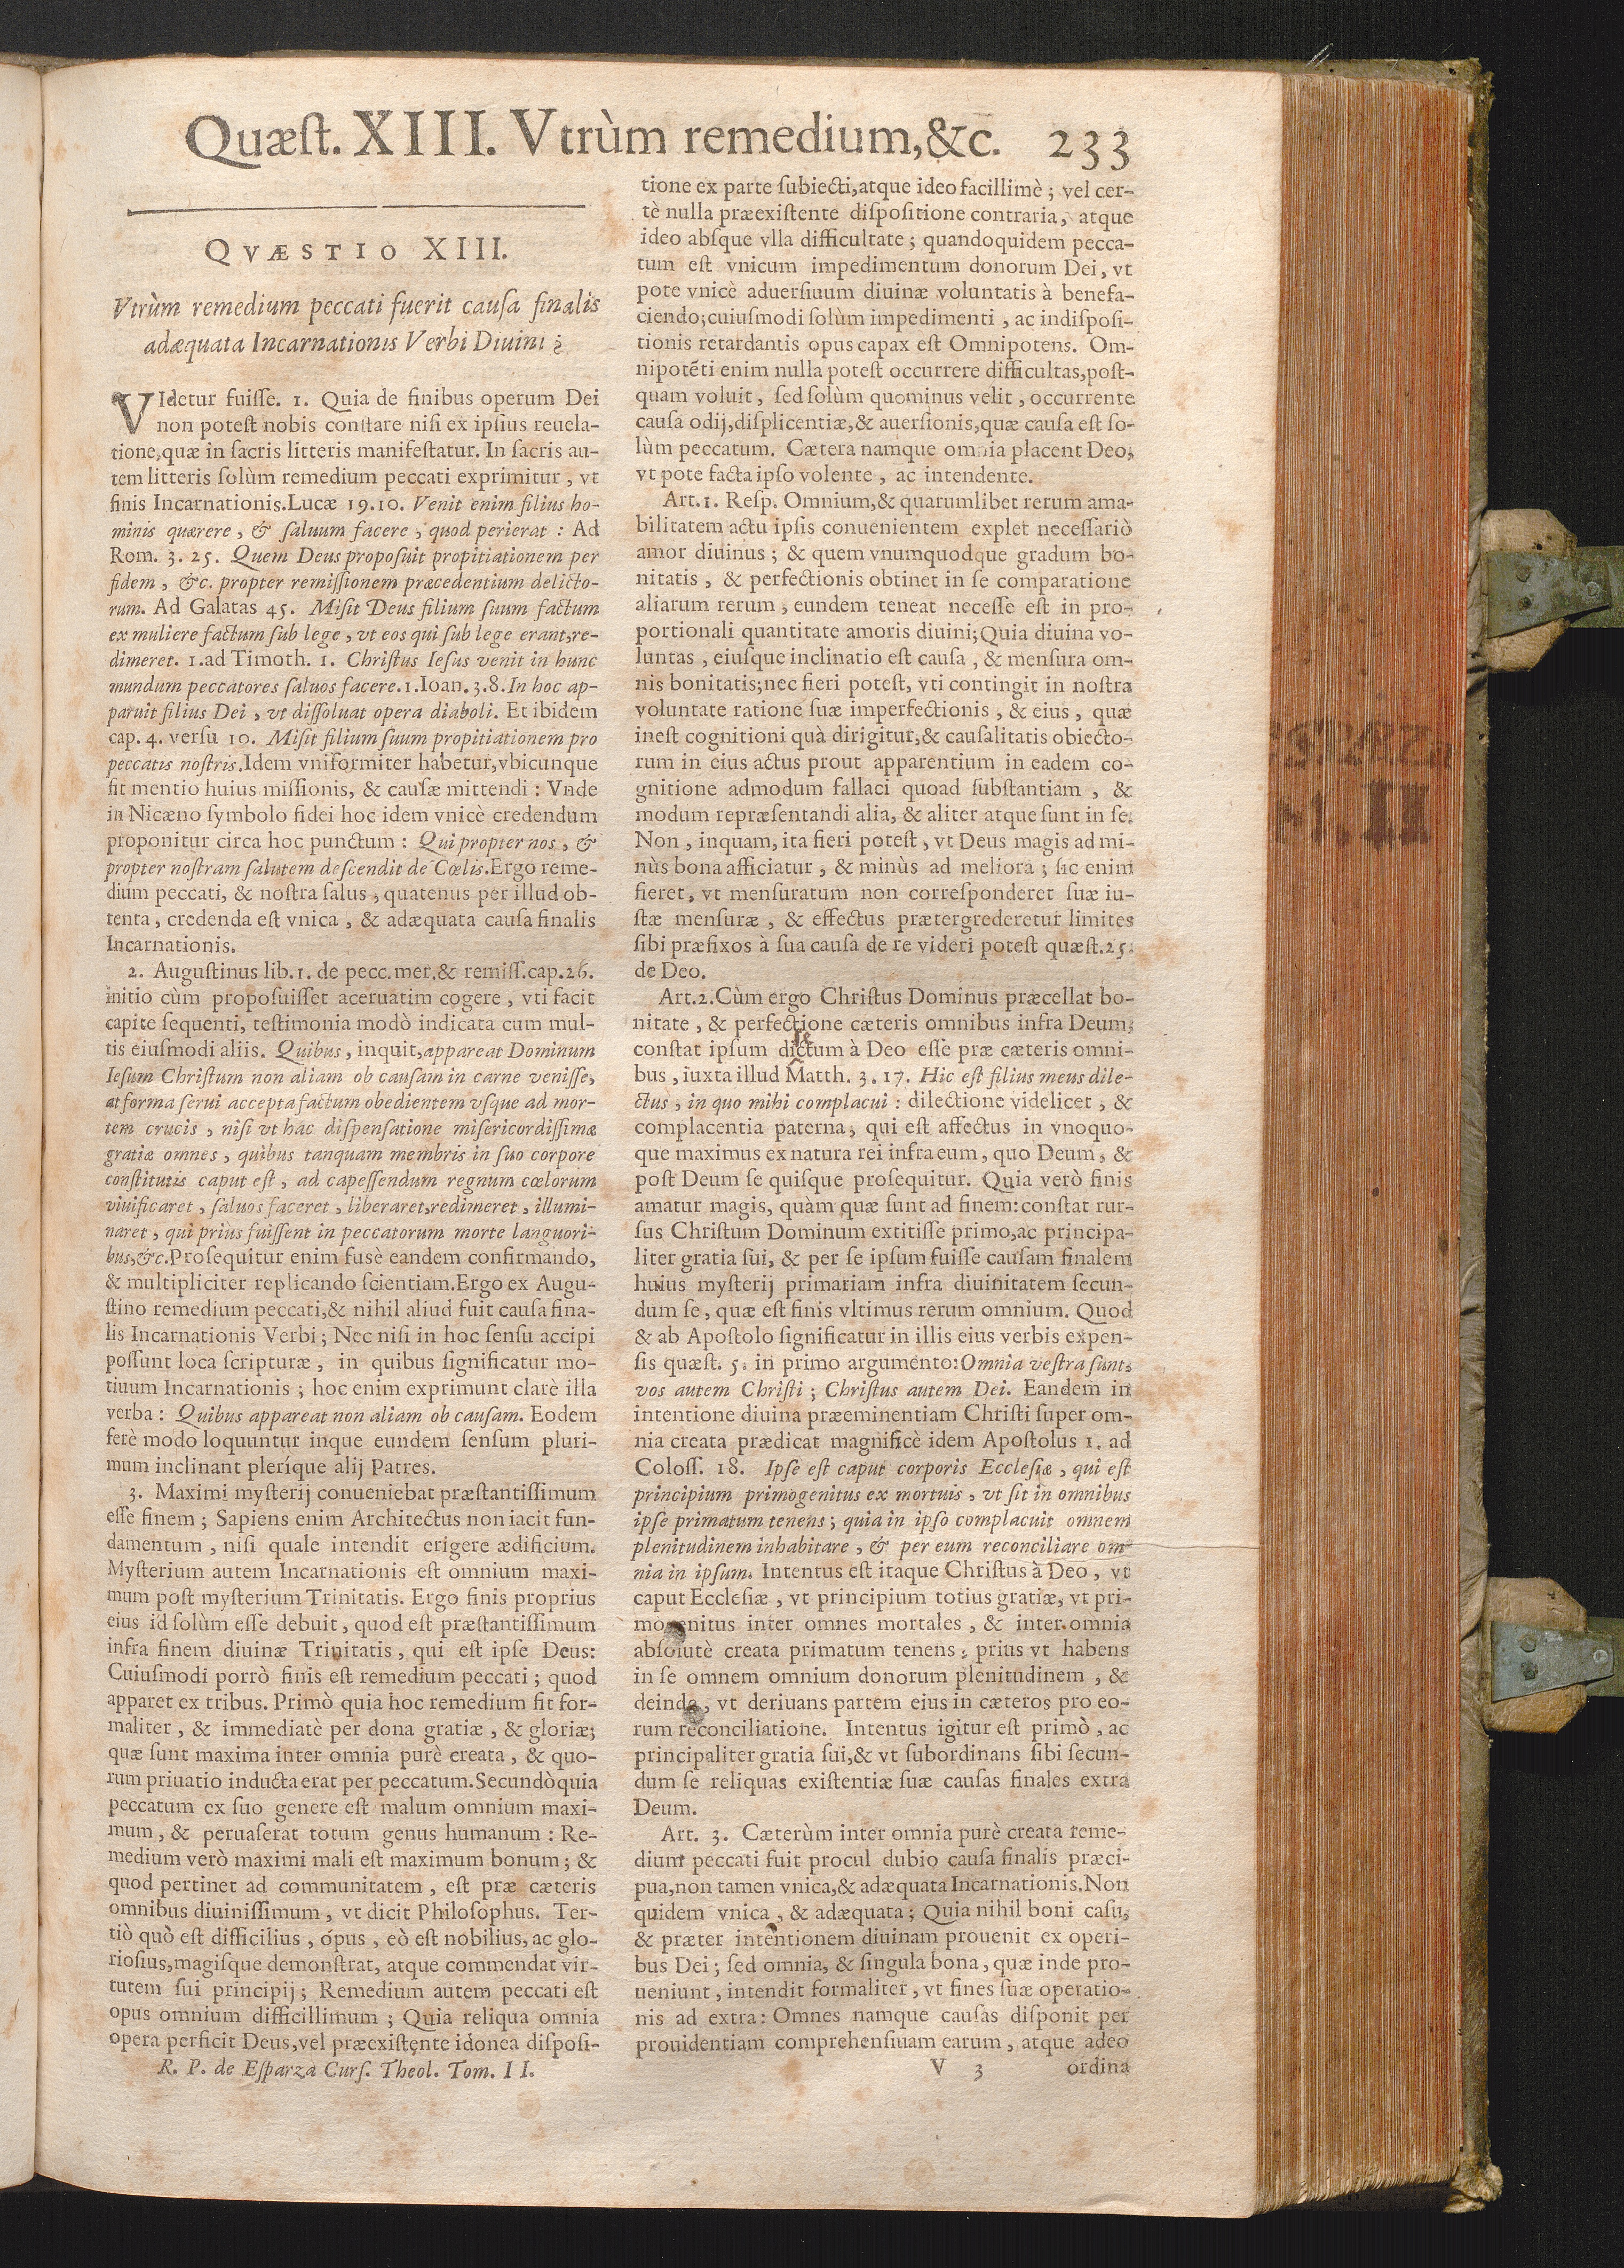 Quæſt. XIII. Vtrùm remedium,&c. 233
QVÆSTIO XIII.
Vtrùm remedium peccati fuerit cauſa finalis
adæquata Incarnationis Verbi Diuini ?
VIdetur fuiſſe. 1. Quia de finibus operum Dei
non poteſt nobis conſtare niſi ex ipſius reuela-
tione,quæ in ſacris litteris manifeſtatur. In ſacris au-
tem litteris ſolùm remedium peccati exprimitur, vt
finis Incarnationis.Lucæ 19.10. Venit enim filius ho-
minis quærere, & ſaluum facere, quod perierat : Ad
Rom. 3. 25. Quem Deus propoſuit propitiationem per
fidem, &c. propter remiſſionem præcedentium delicto-
rum. Ad Galatas 45. Miſit Deus filium ſuum factum
ex muliere factum ſub lege, vt eos qui ſub lege erant,re-
dimeret. 1.ad Timoth. 1. Chriſtus Ieſus venit in hunc
mundum peccatores ſaluos facere.1.Ioan.3.8.In hoc ap-
paruit filius Dei, vt diſſoluat opera diaboli. Et ibidem
cap. 4. verſu 10. Miſit filium ſuum propitiationem pro
peccatis noſtris.Idem vniformiter habetur,vbicunque
fit mentio huius miſſionis, & cauſæ mittendi : Vnde
in Nicæno ſymbolo fidei hoc idem vnicè credendum
proponitur circa hoc punctum : Qui propter nos, &
propter noſtram ſalutem deſcendit de Cœlis.Ergo reme-
dium peccati, & noſtra ſalus, quatenus per illud ob-
tenta, credenda eſt vnica, & adæquata cauſa finalis
Incarnationis.
2. Auguſtinus lib.1. de pecc.mer.& remiſſ.cap.26.
initio cùm propoſuiſſet aceruatim cogere, vti facit
capite ſequenti, teſtimonia modò indicata cum mul-
tis eiuſmodi aliis. Quibus, inquit,appareat Dominum
Ieſum Chriſtum non aliam ob cauſam in carne veniſſe,
at forma ſerui accepta factum obedientem vſque ad mor-
tem crucis, niſi vt hac diſpenſatione miſericordiſſimæ
gratiæ omnes, quibus tanquam membris in ſuo corpore
conſtitutis caput eſt, ad capeſſendum regnum cœlorum
viuificaret, ſaluos faceret, liberaret,redimeret, illumi-
naret, qui priùs fuiſſent in peccatorum morte languori-
bus,&c.Proſequitur enim fuſè eandem confirmando,
& multipliciter replicando ſcientiam.Ergo ex Augu-
ſtino remedium peccati,& nihil aliud fuit cauſa fina-
lis Incarnationis Verbi; Nec niſi in hoc ſenſu accipi
poſſunt loca ſcripturæ, in quibus ſignificatur mo-
tiuum Incarnationis; hoc enim exprimunt clarè illa
verba : Quibus appareat non aliam ob cauſam. Eodem
ferè modo loquuntur inque eundem ſenſum pluri-
mum inclinant pleríque alij Patres.
3. Maximi myſterij conueniebat præſtantiſſimum
eſſe finem; Sapiens enim Architectus non iacit fun-
damentum, niſi quale intendit erigere ædificium.
Myſterium autem Incarnationis eſt omnium maxi-
mum poſt myſterium Trinitatis. Ergo finis proprius
eius id ſolùm eſſe debuit, quod eſt præſtantiſſimum
infra finem diuinæ Trinitatis, qui eſt ipſe Deus:
Cuiuſmodi porrò finis eſt remedium peccati; quod
apparet ex tribus. Primò quia hoc remedium fit for-
maliter, & immediatè per dona gratiæ, & gloriæ;
quæ ſunt maxima inter omnia purè creata, & quo-
rum priuatio inducta erat per peccatum.Secundò quia
peccatum ex ſuo genere eſt malum omnium maxi-
mum, & peruaſerat totum genus humanum : Re-
medium verò maximi mali eſt maximum bonum; &
quod pertinet ad communitatem, eſt præ cæteris
omnibus diuiniſſimum, vt dicit Philoſophus. Ter-
tiò quò eſt difficilius, opus, eò eſt nobilius, ac glo-
rioſius,magiſque demonſtrat, atque commendat vir-
tutem ſui principij; Remedium autem peccati eſt
opus omnium difficillimum; Quia reliqua omnia
opera perficit Deus,vel præexiſtente idonea diſpoſi-
R. P. de Eſparza Curſ. Theol. Tom. II.
tione ex parte ſubiecti,atque ideo facillimè; vel cer-
tè nulla præexiſtente diſpoſitione contraria, atque
ideo abſque vlla difficultate; quandoquidem pecca-
tum eſt vnicum impedimentum donorum Dei, vt
pote vnicè aduerſiuum diuinæ voluntatis à benefa-
ciendo;cuiuſmodi ſolùm impedimenti, ac indiſpoſi-
tionis retardantis opus capax eſt Omnipotens. Om-
nipotēti enim nulla poteſt occurrere difficultas,poſt-
quam voluit, ſed ſolùm quominus velit, occurrente
cauſa odij,diſplicentiæ,& auerſionis,quæ cauſa eſt ſo-
lùm peccatum. Cætera namque omnia placent Deo,
vt pote facta ipſo volente, ac intendente.
Art.1. Reſp. Omnium,& quarumlibet rerum ama-
bilitatem actu ipſis conuenientem explet neceſſariò
amor diuinus; & quem vnumquodque gradum bo-
nitatis, & perfectionis obtinet in ſe comparatione
aliarum rerum, eundem teneat neceſſe eſt in pro-
portionali quantitate amoris diuini;Quia diuina vo-
luntas, eiuſque inclinatio eſt cauſa, & menſura om-
nis bonitatis;nec fieri poteſt, vti contingit in noſtra
voluntate ratione ſuæ imperfectionis, & eius, quæ
ineſt cognitioni quà dirigitur,& cauſalitatis obiecto-
rum in eius actus prout apparentium in eadem co-
gnitione admodum fallaci quoad ſubſtantiam, &
modum repræſentandi alia, & aliter atque ſunt in ſe.
Non, inquam, ita fieri poteſt, vt Deus magis ad mi-
nùs bona afficiatur, & minùs ad meliora; ſic enim
fieret, vt menſuratum non correſponderet ſuæ iu-
ſtæ menſuræ, & effectus prætergrederetur limites
ſibi præfixos à ſua cauſa de re videri poteſt quæſt.25.
de Deo.
Art.2.Cùm ergo Chriſtus Dominus præcellat bo-
nitate, & perfectione cæteris omnibus infra Deum;
conſtat ipſum dictum à Deo eſſe præ cæteris omni-
bus, iuxta illud Matth. 3.17. Hic eſt filius meus dile-
ctus, in quo mihi complacui : dilectione videlicet, &
complacentia paterna, qui eſt affectus in vnoquo-
que maximus ex natura rei infra eum, quo Deum, &
poſt Deum ſe quiſque proſequitur. Quia verò finis
amatur magis, quàm quæ ſunt ad finem:conſtat rur-
ſus Chriſtum Dominum extitiſſe primo,ac principa-
liter gratia ſui, & per ſe ipſum fuiſſe cauſam finalem
huius myſterij primariam infra diuinitatem ſecun-
dum ſe, quæ eſt finis vltimus rerum omnium. Quod
& ab Apoſtolo ſignificatur in illis eius verbis expen-
ſis quæſt. 5. in primo argumento:Omnia veſtra ſunt,
vos autem Chriſti; Chriſtus autem Dei. Eandem in
intentione diuina præeminentiam Chriſti ſuper om-
nia creata prædicat magnificè idem Apoſtolus 1. ad
Coloſſ. 18. Ipſe eſt caput corporis Eccleſiæ, qui eſt
principium primogenitus ex mortuis, vt ſit in omnibus
ipſe primatum tenens; quia in ipſo complacuit omnem
plenitudinem inhabitare, & per eum reconciliare om-
nia in ipſum. Intentus eſt itaque Chriſtus à Deo, vt
caput Eccleſiæ, vt principium totius gratiæ, vt pri-
mogenitus inter omnes mortales, & inter omnia
abſolutè creata primatum tenens; prius vt habens
in ſe omnem omnium donorum plenitudinem, &
deinde, vt deriuans partem eius in cæteros pro eo-
rum reconciliatione. Intentus igitur eſt primò, ac
principaliter gratia ſui,& vt ſubordinans ſibi ſecun-
dum ſe reliquas exiſtentiæ ſuæ cauſas finales extra
Deum.
Art. 3. Cæterùm inter omnia purè creata reme-
dium peccati fuit procul dubio cauſa finalis præci-
pua,non tamen vnica,& adæquata Incarnationis.Non
quidem vnica, & adæquata; Quia nihil boni caſu,
& præter intentionem diuinam prouenit ex operi-
bus Dei; ſed omnia, & ſingula bona, quæ inde pro-
ueniunt, intendit formaliter, vt fines ſuæ operatio-
nis ad extra: Omnes namque cauſas diſponit per
prouidentiam comprehenſiuam earum, atque adeo
V 3 ordina